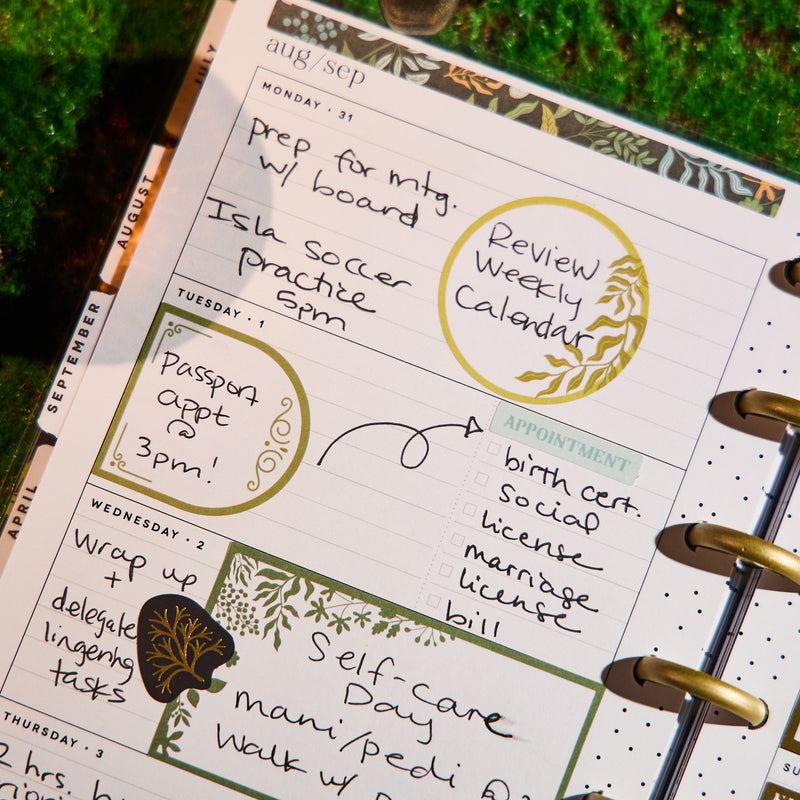 aug/sep
JULY
AUGUST
SEPTEMBER
APRIL
MONDAY · 31
prep for mtg.
w/ board
Isla soccer
practice
5pm
Review
Weekly
Calendar
TUESDAY · 1
Passport
appt
@
3pm!
APPOINTMENT
birth cert.
social
license
marriage
license
bill
WEDNESDAY · 2
Wrap up
+
delegate
lingering
tasks
Self-care
Day
mani/pedi @
Walk w/
THURSDAY · 3
2 hrs.
SU